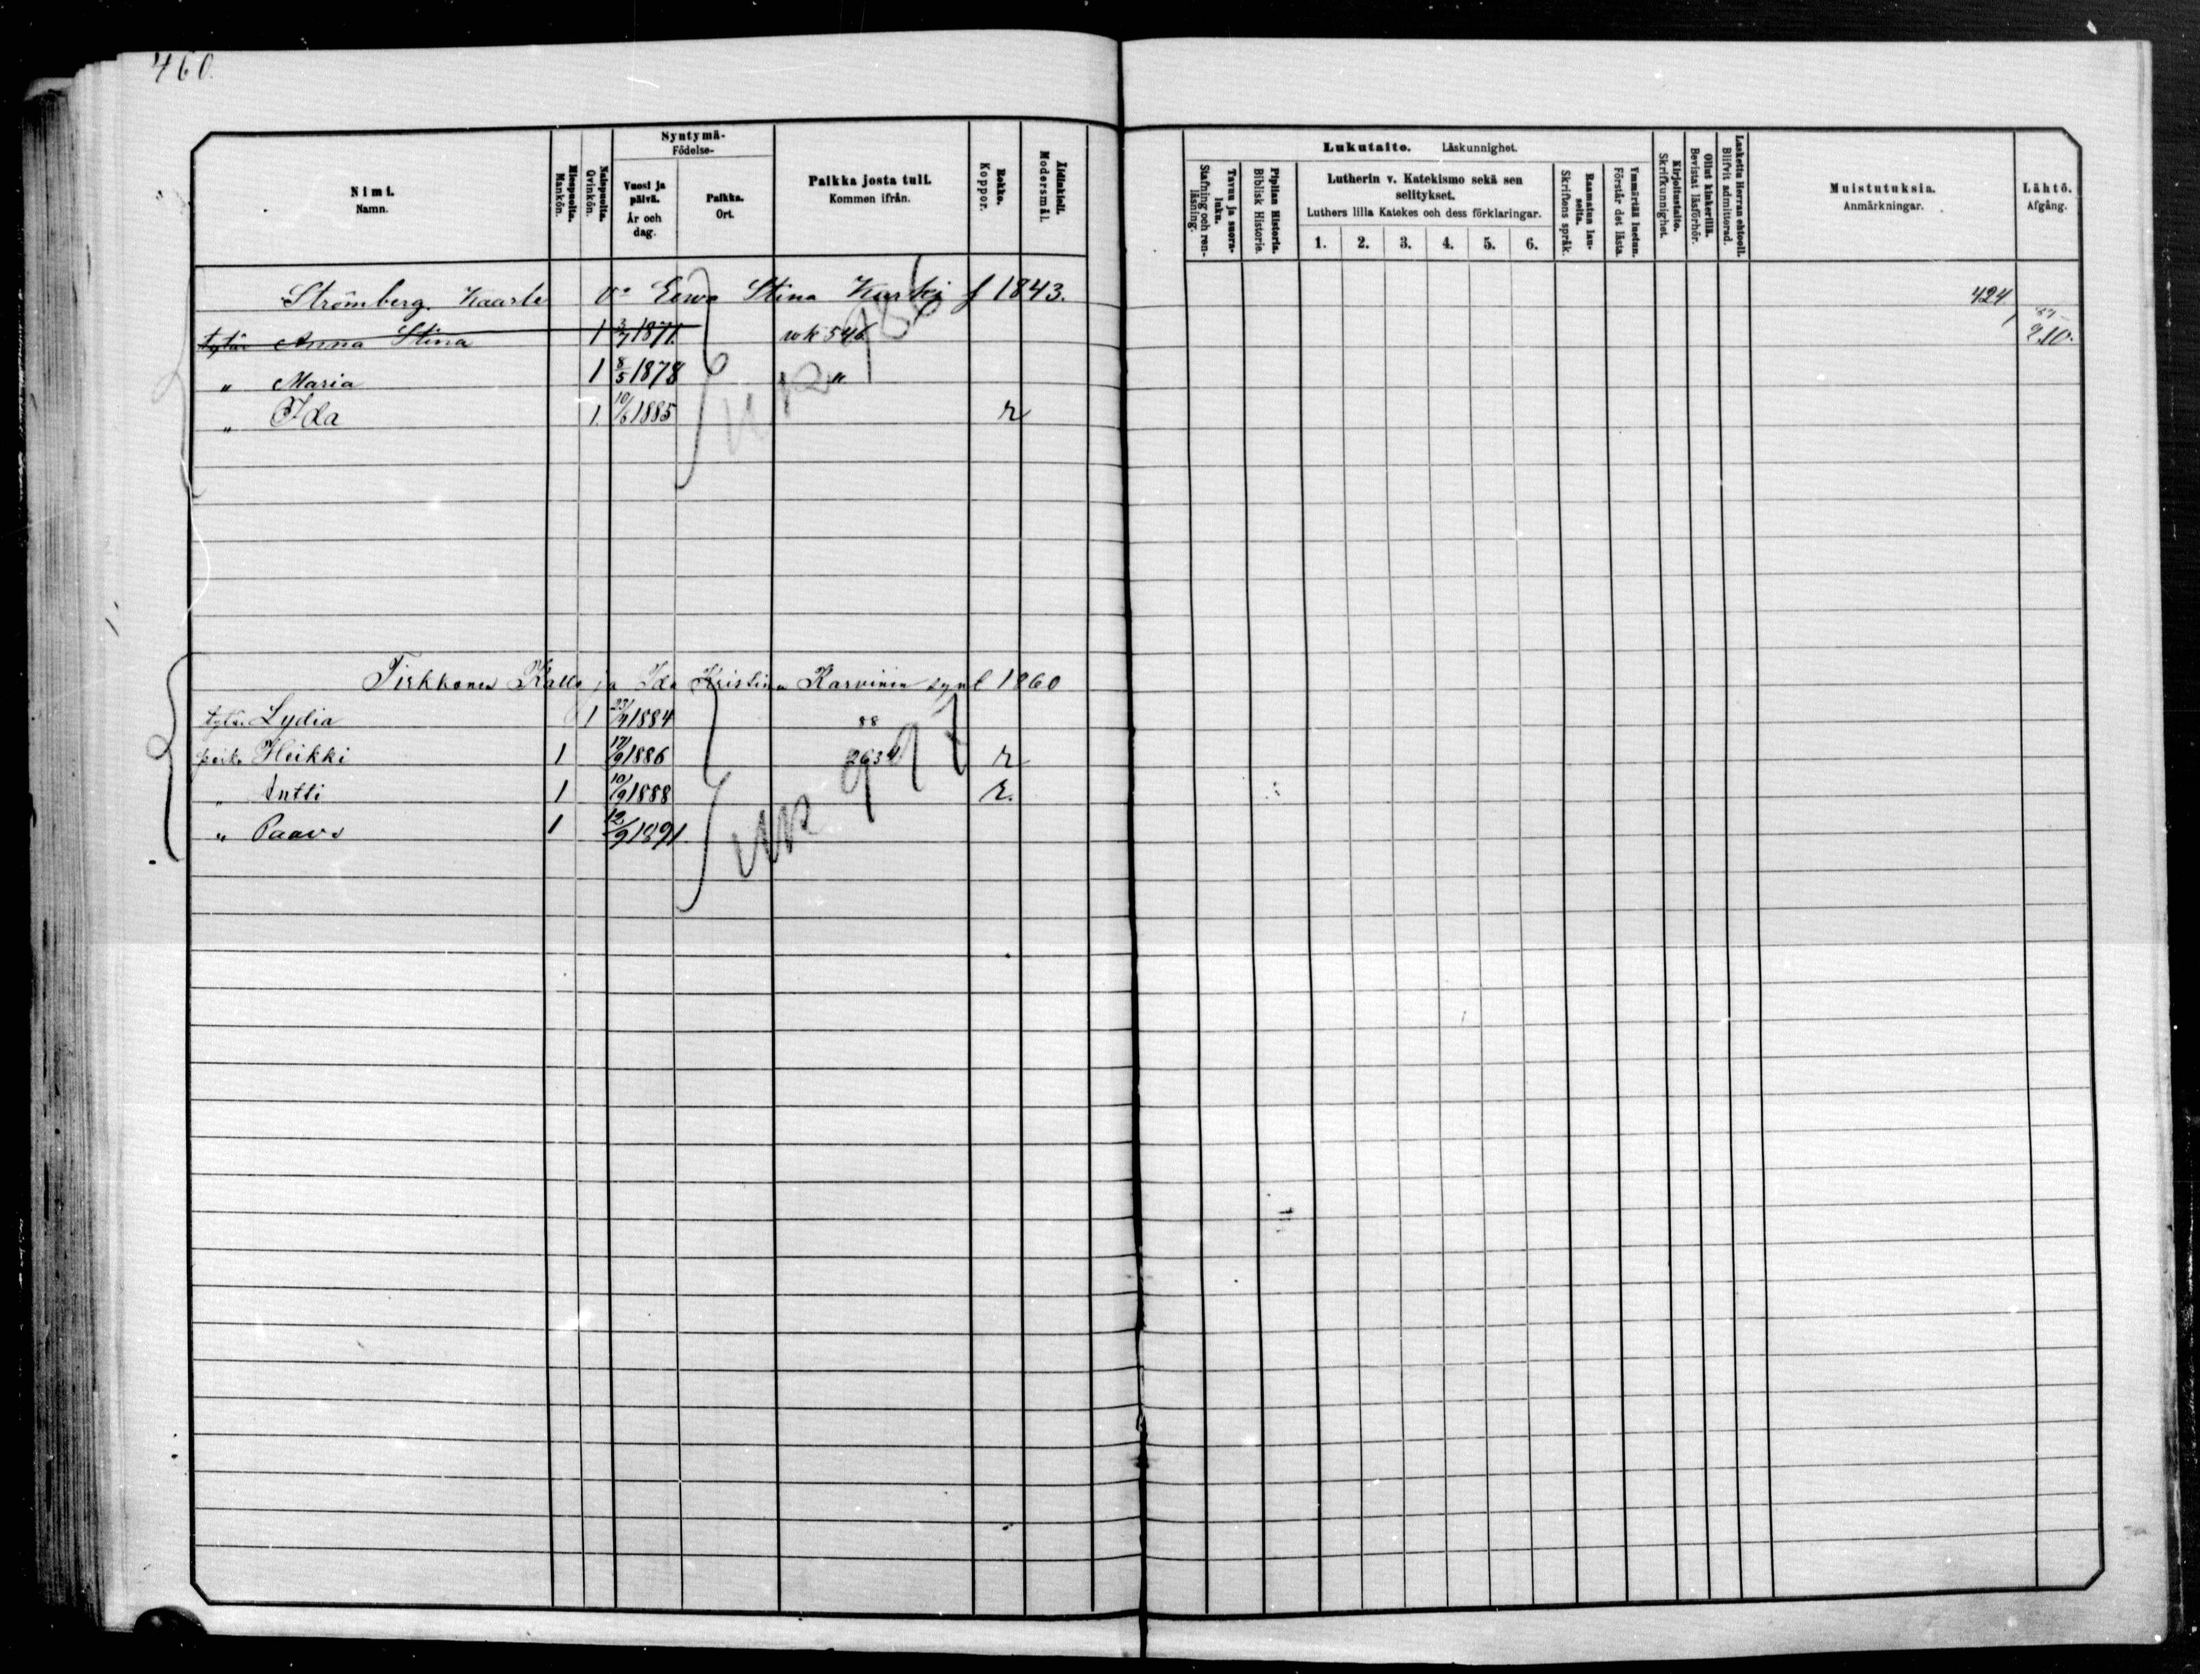 460.
Nimi.
Namn.
Miespuolia.
Mankön.
Naispuolia.
Qvinkön.
Syntymä-
Födelse-
Vuosi ja päivä.
År och dag.
Paikka.
Ort.
Paikka josta tuli.
Kommen ifrån.
Rokko.
Koppor.
Äidinkieli.
Modersmål.
Lukutaito. Läskunnighet.
Tavuu ja suora-luku.
Stafning och ren-läsning.
Piplian Historia.
Biblisk Historie.
Lutherin v. Katekismo sekä sen selitykset.
Luthers lilla Katekes och dess förklaringar.
1. 2. 3. 4. 5. 6.
Raamatun lau-seita.
Skriftens språk.
Ymmärtää luetun.
Förstår det lästa.
Kirjoitustaito.
Skrifkunnighet.
Ollut kinkerillä.
Bevistat läsförhör.
Laskettu Herran ehtooll.
Blifvit admitterad.
Muistutuksia.
Anmärkningar.
Lähtö.
Afgång.
Strömberg Kaarle vo Eewa Stina Kurki f 1843. 424
tytär Anna Stina 1 3/7 1871. wk 546 2.10.
" Maria 1 8/5 1878 "
" Ida 1. 10/6 1885 r
Tirkkonen Kalle ja Ida Kristina Karvinen synt 1860
tytär Lydia 1 1884 88
poika Heikki 1 17/9 1886 2634 r
" Antti 1 10/9 1888 r.
" Paavo 1 12/9 1891.